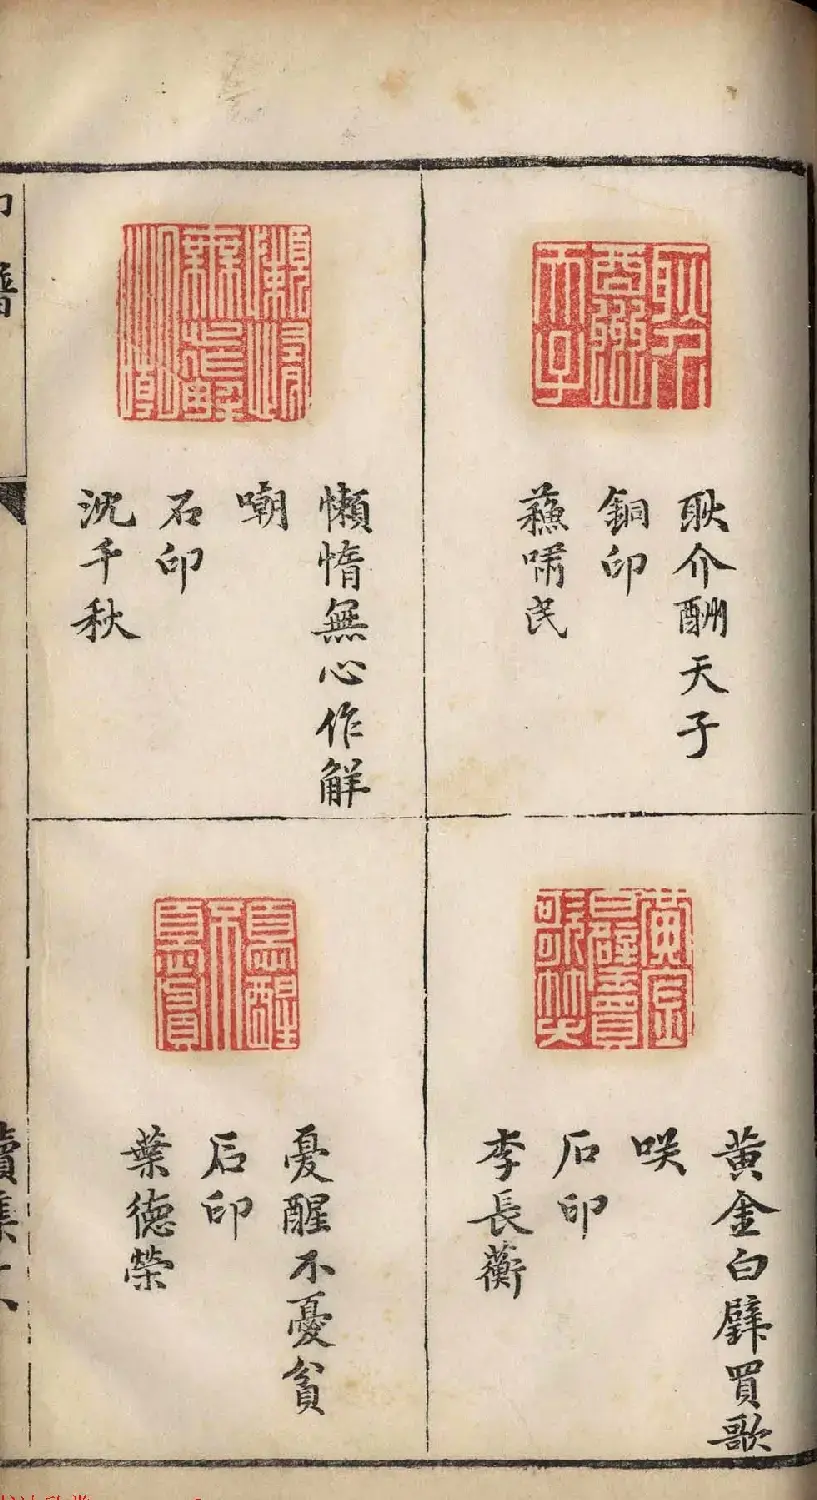 耿介酬天子
銅印
蘓嘯民
懶惰無心作解
嘲
石印
沈千秋
黄金白璧買歌
咲
石印
李長蘅
憂醒不憂貧
石印
葉德榮
印譜
續集